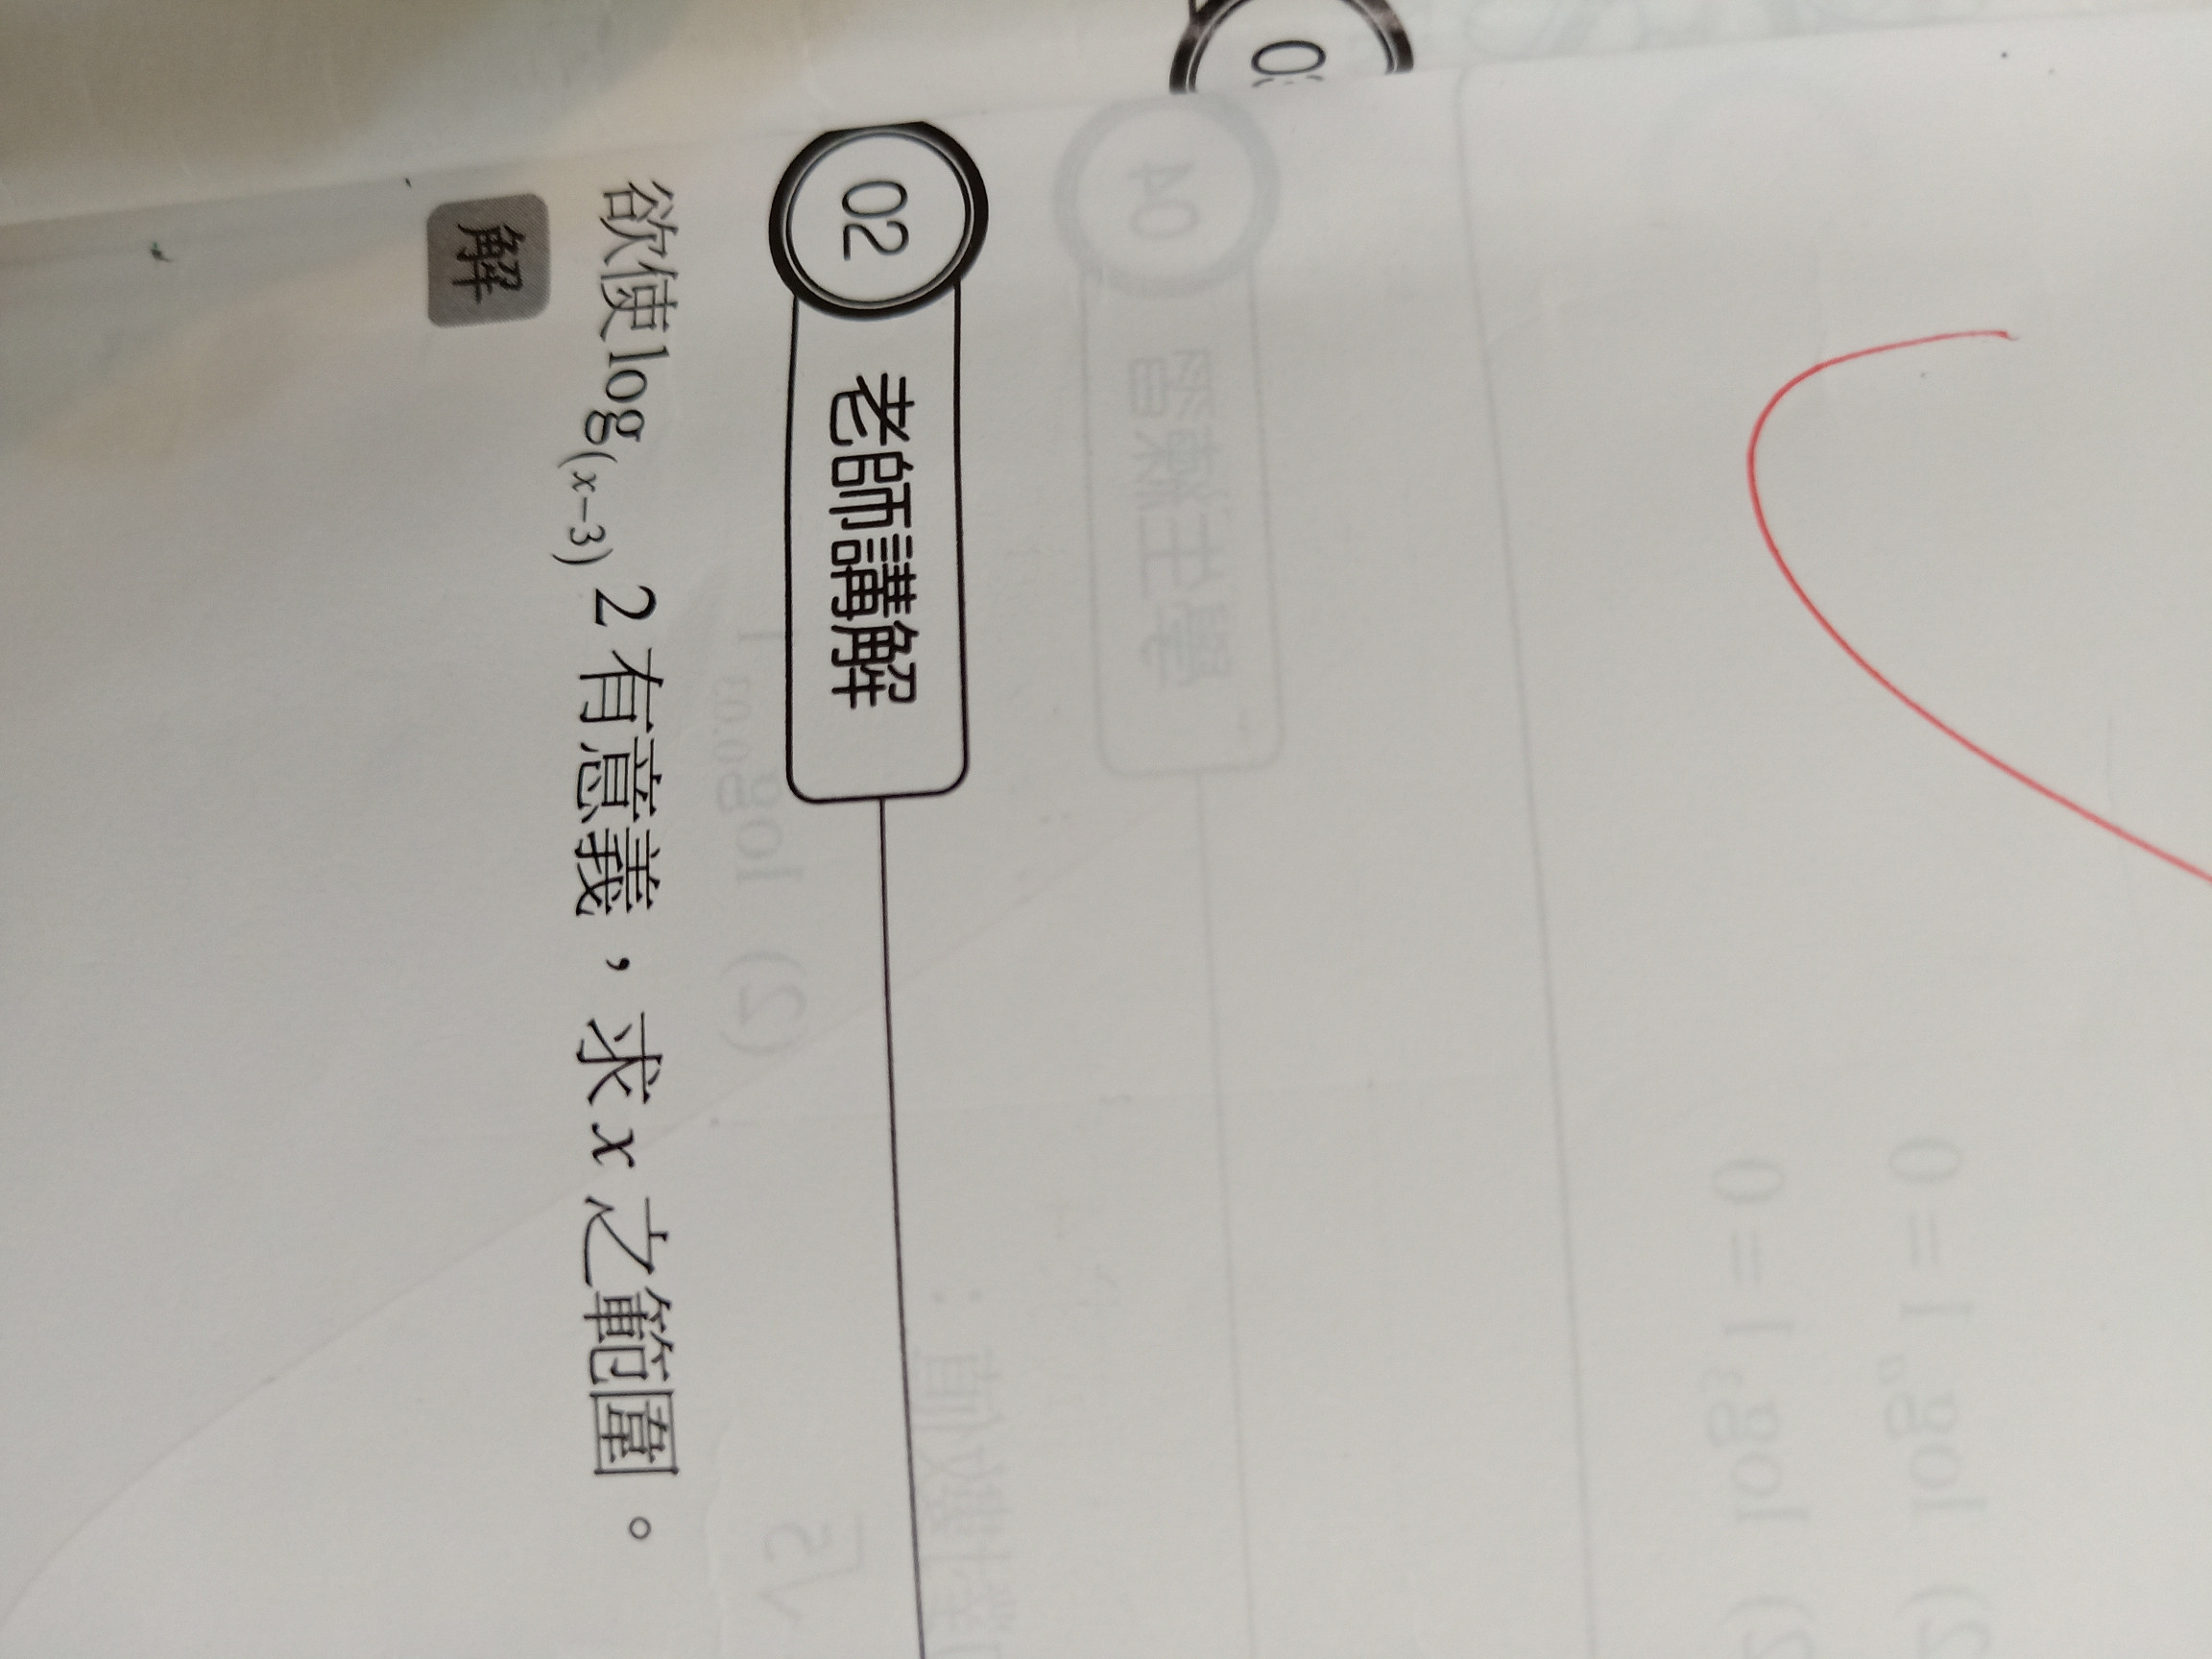 02 老師講解
欲使log₍ₓ₋₃₎ 2 有意義，求 x 之範圍。
解